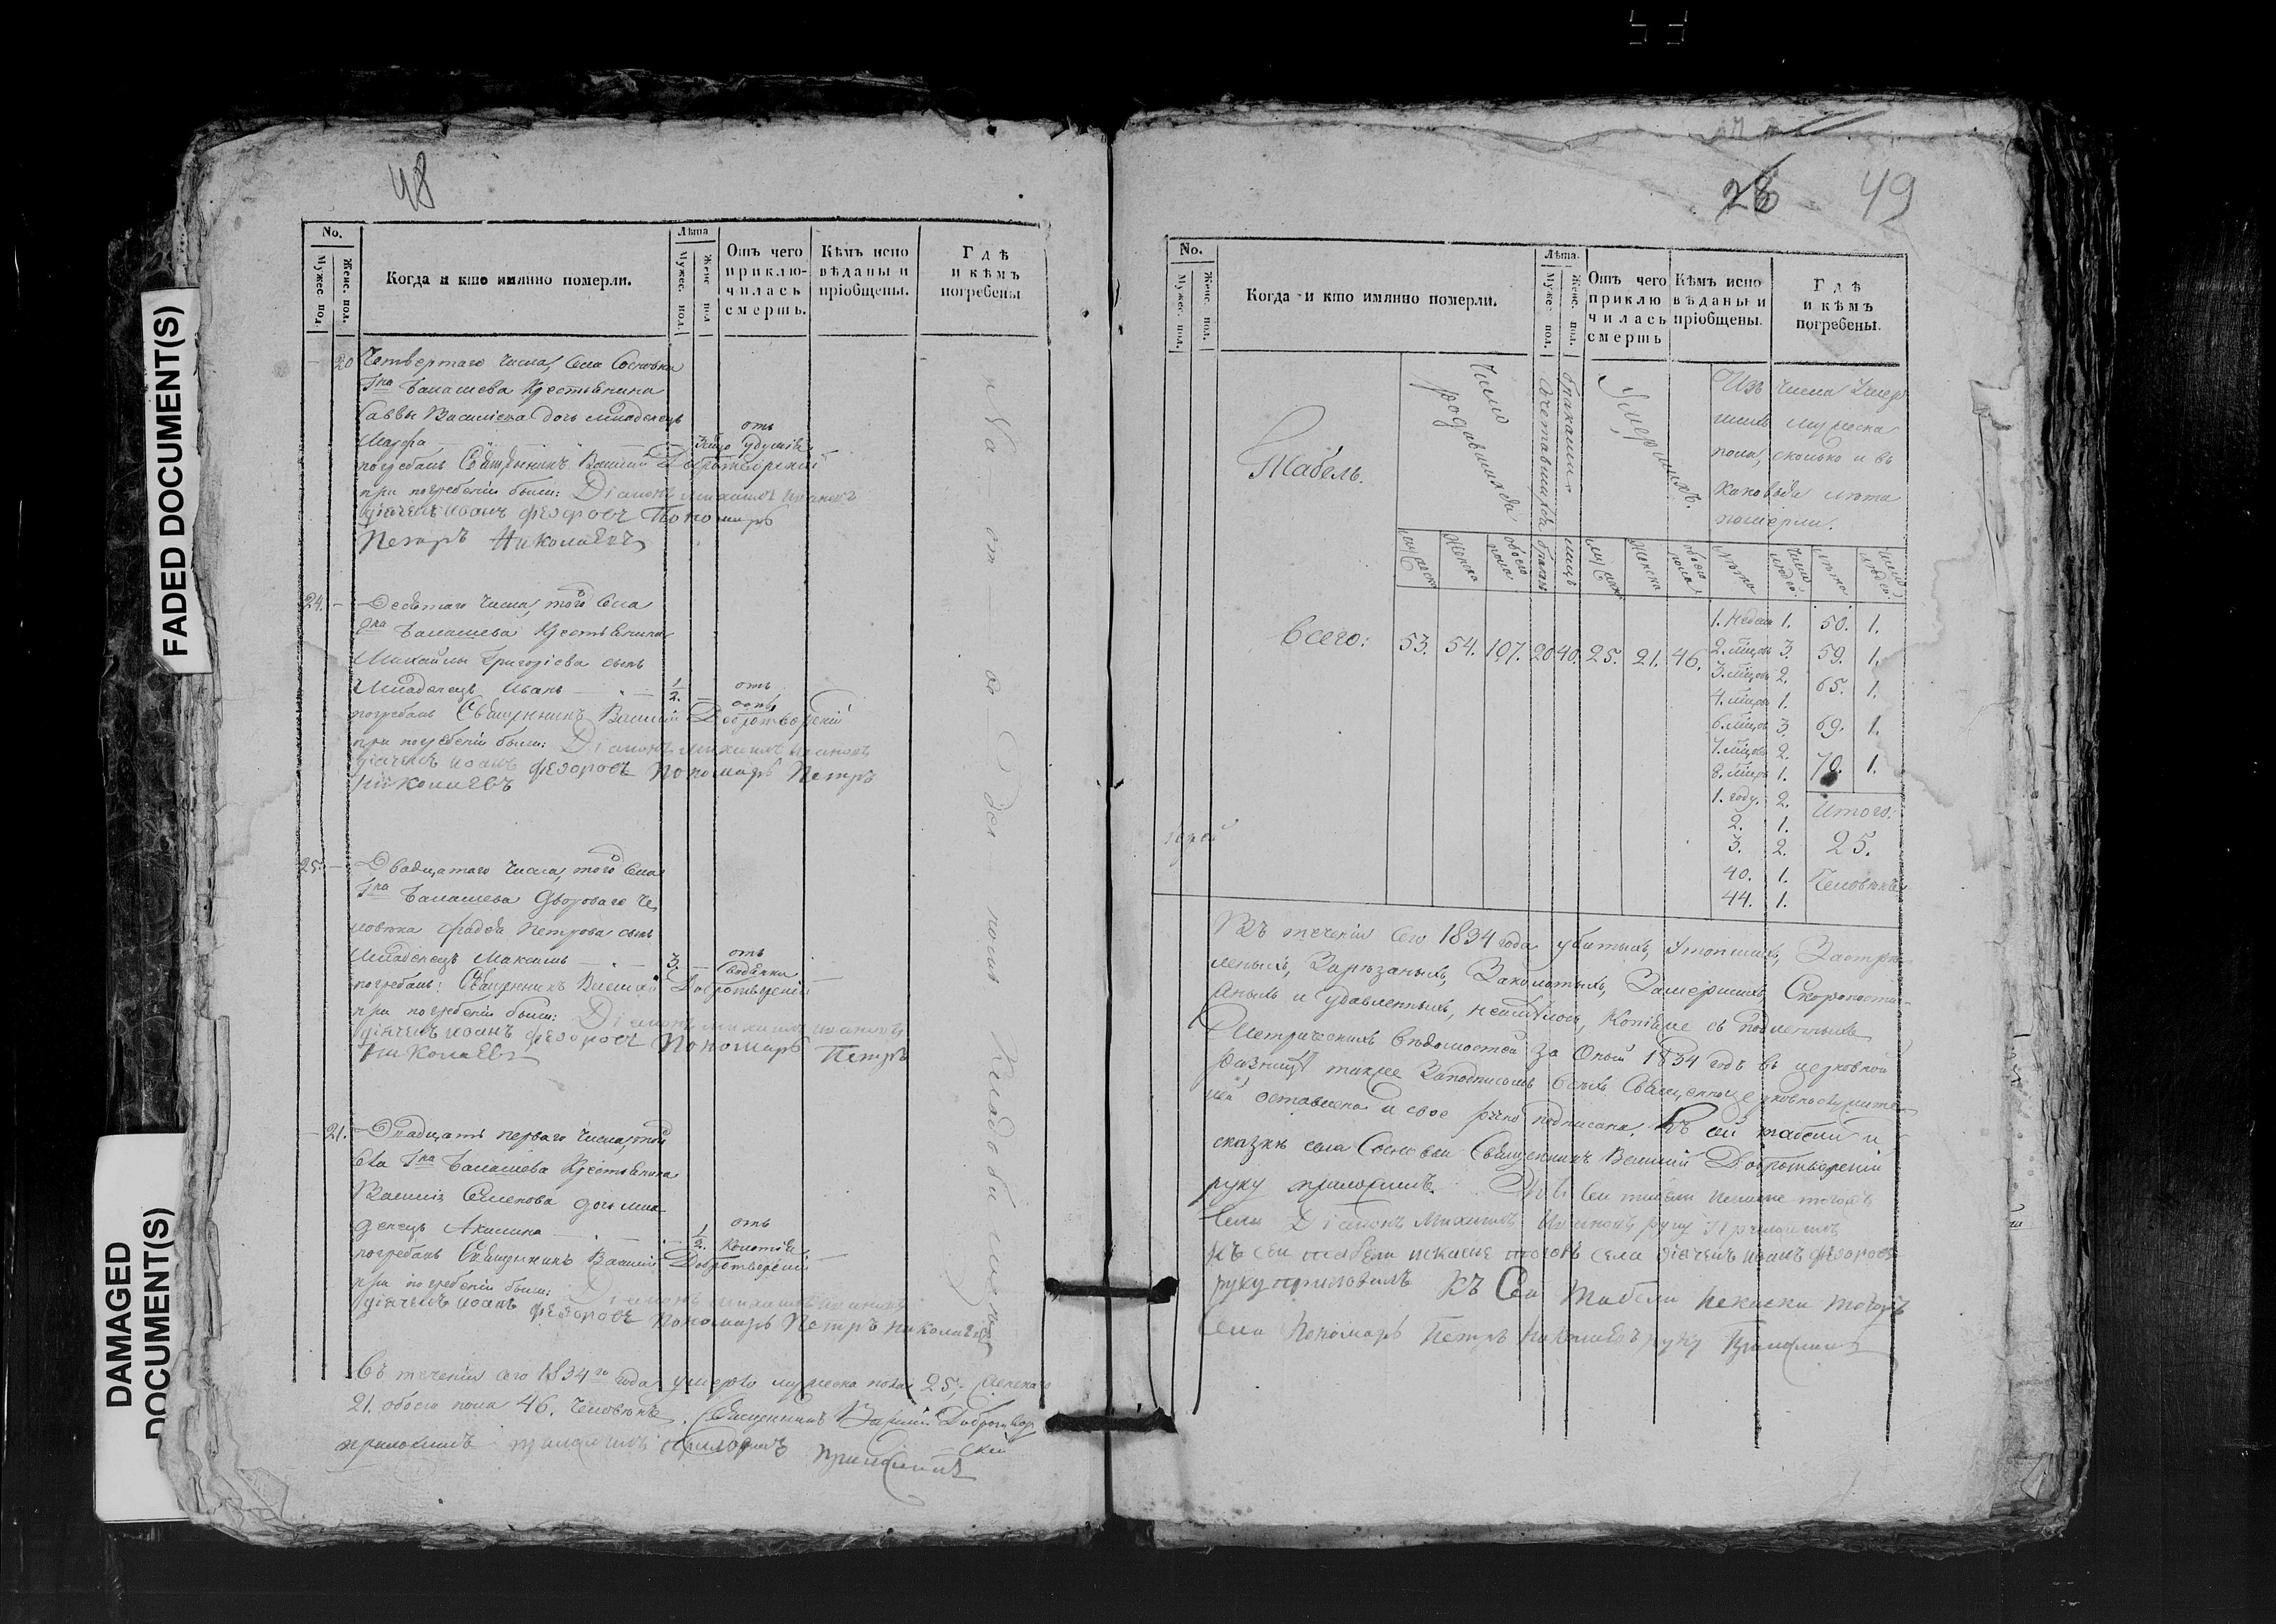 FADED DOCUMENT(S)
DAMAGED
DOCUMENT(S)
48
No.
Мужес. пол.
Женс. пол.
Когда и кто имянно померли.
Лѣта
Мужес. пол.
Женс. пол
Отъ чего
приклю-
чилась
смерть.
Кѣмъ испо
вѣданы и
пріобщены.
Гдѣ
и кѣмъ
погребены
20 Четвертаго числа, Села Сосновки
Гна Балашева Крестьянина
Саввы Василіева дочь младенецъ
Марфа
отъ
погребалъ Священникъ Василій Добротворскій
при погребеніи были: Діаконъ Михаилъ Ивановъ
дїячекъ Иоанъ Федоровъ Пономарь
Петръ Николаевъ
24. Десятаго числа, того Села
Гна Балашева Крестьянина
Михайлы Григорієва сынъ
Младенецъ Иванъ 1/2. отъ
оспы
погребалъ Священникъ Василій Добротворскій
при погребеніи были: Діаконъ Михаилъ Ивановъ
дїячекъ Иоанъ Федоровъ Пономарь Петръ
Николаевъ
25. Двадцатаго числа, того Села
Гна Балашева Двороваго Че
ловѣка Фадѣя Петрова сынъ
Младенецъ Максимъ 3. отъ
погребалъ: Священникъ Василій Добротворскій
при погребеніи были: Діаконъ Михаилъ Ивановъ
дїячекъ Иоанъ Федоровъ Пономарь Петръ
Николаевъ
21. Дватцать перваго числа, того
Села Гна Балашева Крестьянина
Василія Семенова дочь мла
денецъ Акилина 1/2. отъ
погребалъ Священникъ Василій Добротворскій
при погребеніи были: Діаконъ Михаилъ Ивановъ
дїячекъ Иоанъ Федоровъ Пономарь Петръ Николаевъ
На отводномъ Кладбищѣ
Въ теченіи сего 1834го года умерло мужеска пола 25, женска
21. обоего пола 46. Человѣкъ. Священникъ Василій Добротвор
скій
приложилъ приложилъ приложилъ приложилъ
28 49
No.
Мужес. пол.
Женс. пол.
Когда и кто имянно померли.
Лѣта.
Муже пол.
Женс. пол.
Отъ чего
приклю
чилась
смерть
Кѣмъ испо
вѣданы и
пріобщены.
Гдѣ
и кѣмъ
погребены.
Табель.
Число
родившихся
Бракомъ
Сочетавшихся
Умершихъ.
Изъ числа Умер
шихъ мужеска
пола, сколько и въ
каковыя лѣта
померли.
мужеска
женска
обоего
пола
браковъ
лицъ
мужеска
женска
обоего
пола
Лѣта
Число
людей.
Лѣта
Число
людей.
Всего: 53. 54. 107. 20 40. 25. 21. 46.
1. недели 1. 50. 1.
2. мцовъ 3. 59. 1.
3. мцовъ 2. 65. 1.
4. мцовъ 1.
6. мцовъ 3 69. 1.
7. мцовъ 2. 70. 1.
8. мцовъ 1.
1. году. 2. Итого:
2. 1. 25.
3. 2. Человѣкъ
40. 1.
44. 1.
Въ теченіи сего 1834 года убитыхъ, утопшихъ, Застре
леныхъ, Зарѣзаныхъ, Заколотыхъ, Замерзшихъ, Скоропости-
жныхъ и удавленныхъ, неимѣлось, Копія же съ подлинныхъ
Метрическихъ вѣдомостей за оный 1834 годъ въ церковной
ризницѣ также Заподписомъ всѣхъ Священноцерковнослужите
лей оставлена и своеручно подписана. Къ сей табели и
сказкѣ села Сосновки Священникъ Василій Добротворскій
руку приложилъ. Къ сей табели искаске тогожъ
Села Діаконъ Михаилъ Ивановъ руку Приложилъ
Къ сей табели искаске тогожъ села дїячекъ Иоанъ Федоровъ
руку приложилъ Къ Сей Табели искаски тогожъ
Села Пономарь Петръ Николаевъ руку Приложилъ